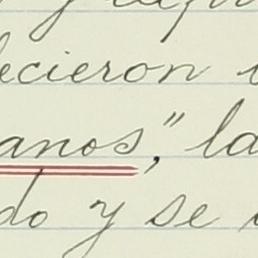 ecieron
anos," la
do y se